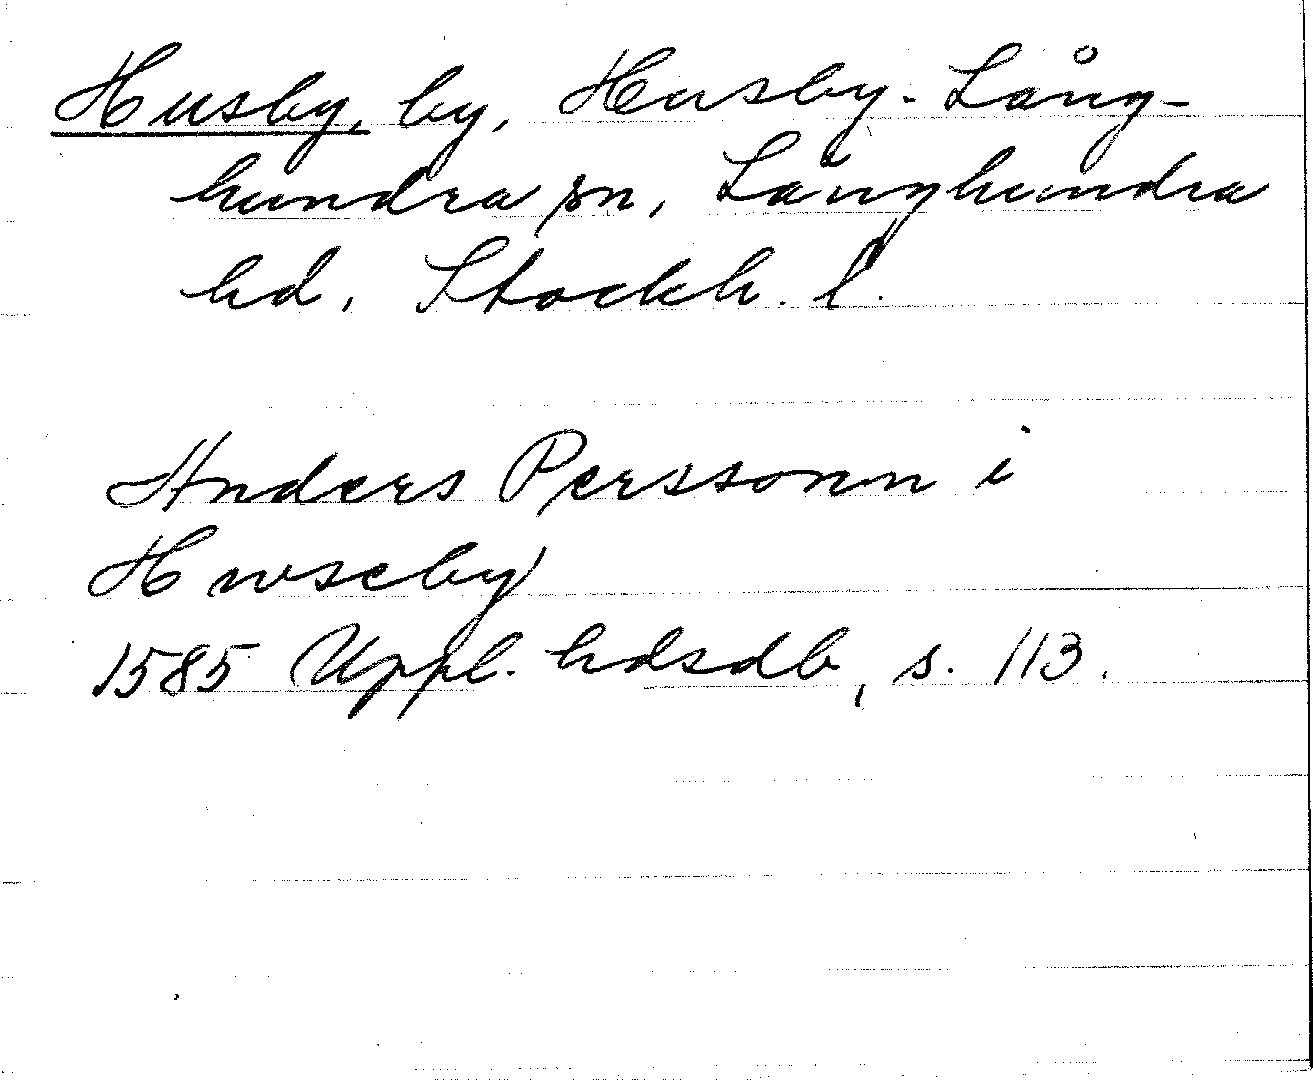 Husby, by, Husby-Lång-
hundra sn, Långhundra
hd, Stockh. l.
Anders Perssonn i
Hwseby
1585 Uppl. hdsdb, s. 113.